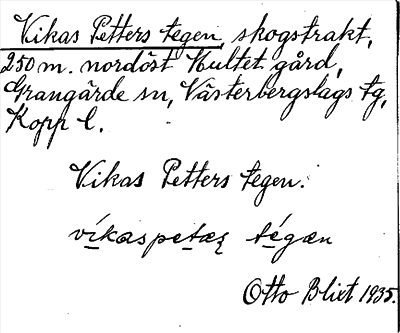 Vikas Petters tegen, skogstrakt,
250 m. nordöst Hultet gård,
Grangärde sn, Västerbergslags tg,
Kopp l.
Vikas Petters tegen.
víkaspetæʂ tégæn
Otto Blixt 1935.